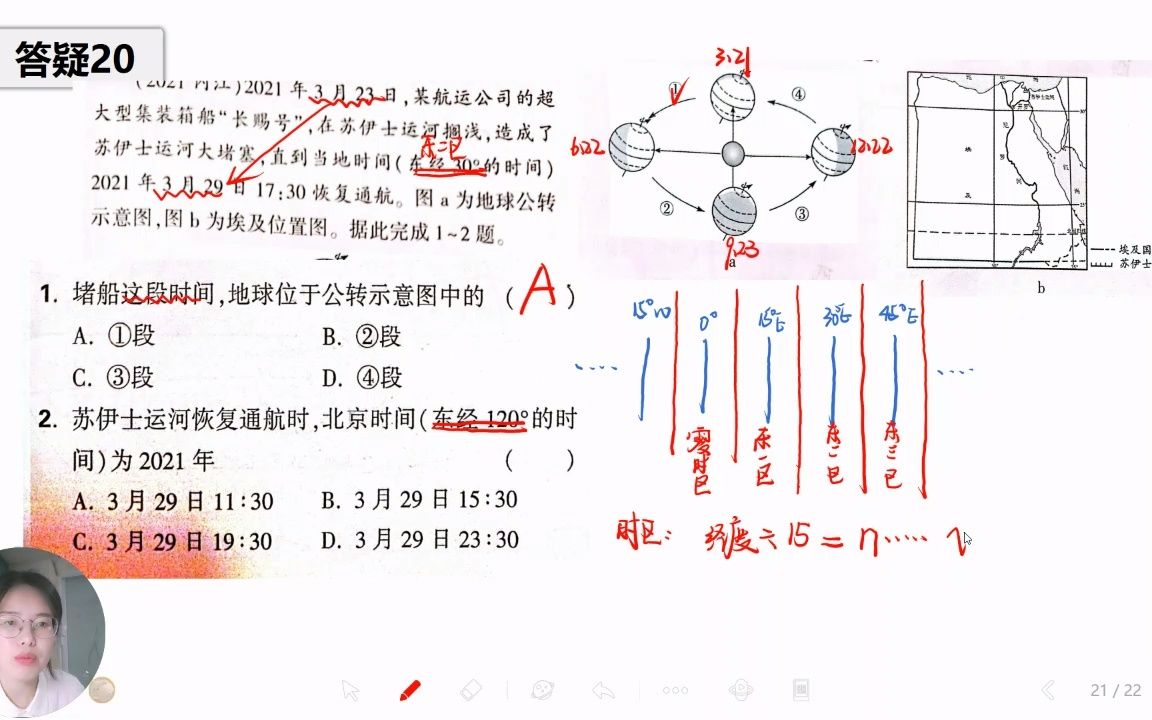 答疑20
(2021 内江)2021 年 3 月 23 日,某航运公司的超
大型集装箱船“长赐号”,在苏伊士运河搁浅,造成了
苏伊士运河大堵塞,直到当地时间(东经 30°的时间)
2021 年 3 月 29 日 17:30 恢复通航。图 a 为地球公转
示意图,图 b 为埃及位置图。据此完成 1~2 题。
东二区
1. 堵船这段时间,地球位于公转示意图中的 ( A )
A. ①段 B. ②段
C. ③段 D. ④段
2. 苏伊士运河恢复通航时,北京时间(东经 120°的时
间)为 2021 年 ( )
A. 3 月 29 日 11:30 B. 3 月 29 日 15:30
C. 3 月 29 日 19:30 D. 3 月 29 日 23:30
3.21
① ④
6.22 12.22
② ③
9.23
a
埃及
埃及国
苏伊士
b
15°W 0° 15°E 30°E 45°E
零时区 东一区 东二区 东三区
时区: 经度÷15=n……
21 / 22